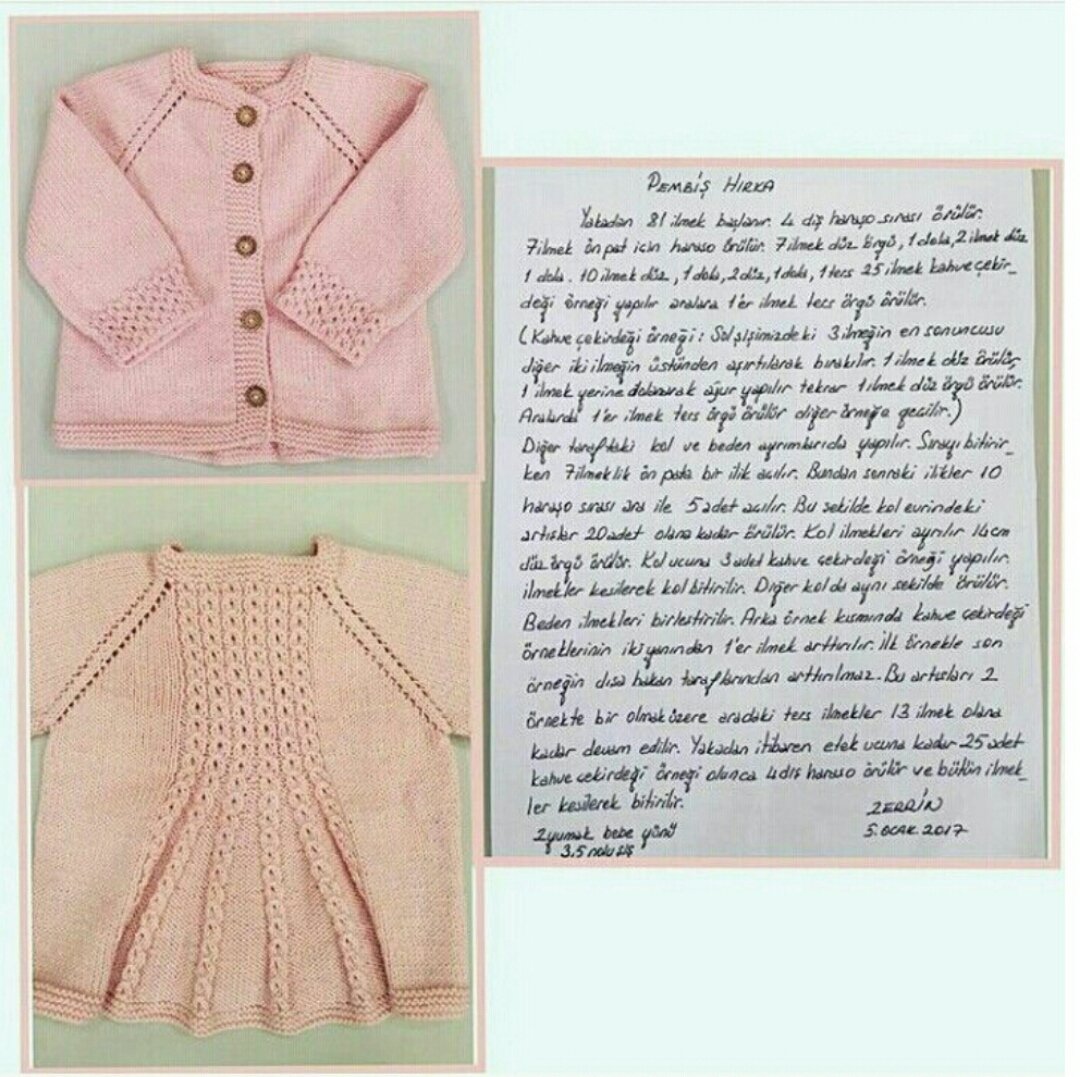 PEMBİŞ HIRKA
Yakadan 81 ilmek başlanır. 4 diş haraşo sırası örülür.
7 ilmek ön pat için haraşo örülür. 7 ilmek düz örgü, 1 dola, 2 ilmek düz
1 dola. 10 ilmek düz, 1 dola, 2 düz, 1 dola, 1 ters 25 ilmek kahve çekir_
deği örneği yapılır aralara 1'er ilmek ters örgü örülür.
(Kahve çekirdeği örneği: Sol şişimizdeki 3 ilmeğin en sonuncusu
diğer iki ilmeğin üstünden aşırtılarak bırakılır. 1 ilmek düz örülür,
1 ilmek yerine dolanarak ajur yapılır tekrar 1 ilmek düz örgü örülür.
Aralarda 1'er ilmek ters örgü örülür diğer örneğe geçilir.)
Diğer taraftaki kol ve beden ayrımlarıda yapılır. Sırayı bitirir_
ken 7 ilmeklik ön pata bir ilik açılır. Bundan sonraki ilikler 10
haraşo sırası ara ile 5 adet açılır. Bu şekilde kol evrindeki
artışlar 20 adet olana kadar örülür. Kol ilmekleri ayrılır 14 cm
düz örgü örülür. Kol ucuna 3 adet kahve çekirdeği örneği yapılır.
ilmekler kesilerek kol bitirilir. Diğer kol da aynı şekilde örülür.
Beden ilmekleri birleştirilir. Arka örnek kısmında kahve çekirdeği
örneklerinin iki yanından 1'er ilmek arttırılır. İlk örnekle son
örneğin dışa bakan taraflarından arttırılmaz. Bu artışları 2
örnekte bir olmak üzere aradaki ters ilmekler 13 ilmek olana
kadar devam edilir. Yakadan itibaren etek ucuna kadar 25 adet
kahve çekirdeği örneği olunca 4 diş haraşo örülür ve bütün ilmek_
ler kesilerek bitirilir.
ZERRİN
2 yumak bebe yünü
5. OCAK. 2017
3.5 nolu şiş